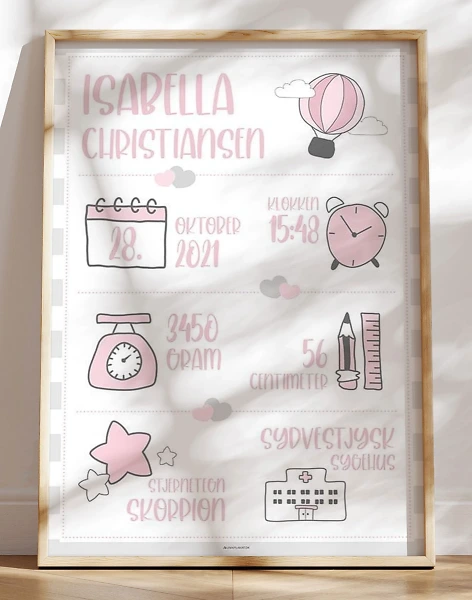 ISABELLA
CHRISTIANSEN
28.
OKTOBER
2021
KLOKKEN
15:48
3450
GRAM
56
CENTIMETER
STJERNETEGN
SKORPION
SYDVESTJYSK
SYGEHUS